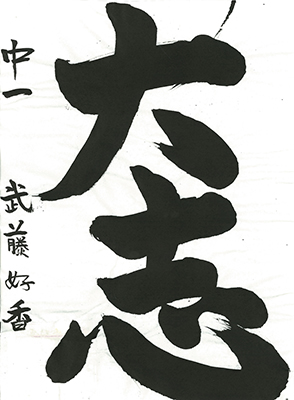 大志
中一 武藤好香